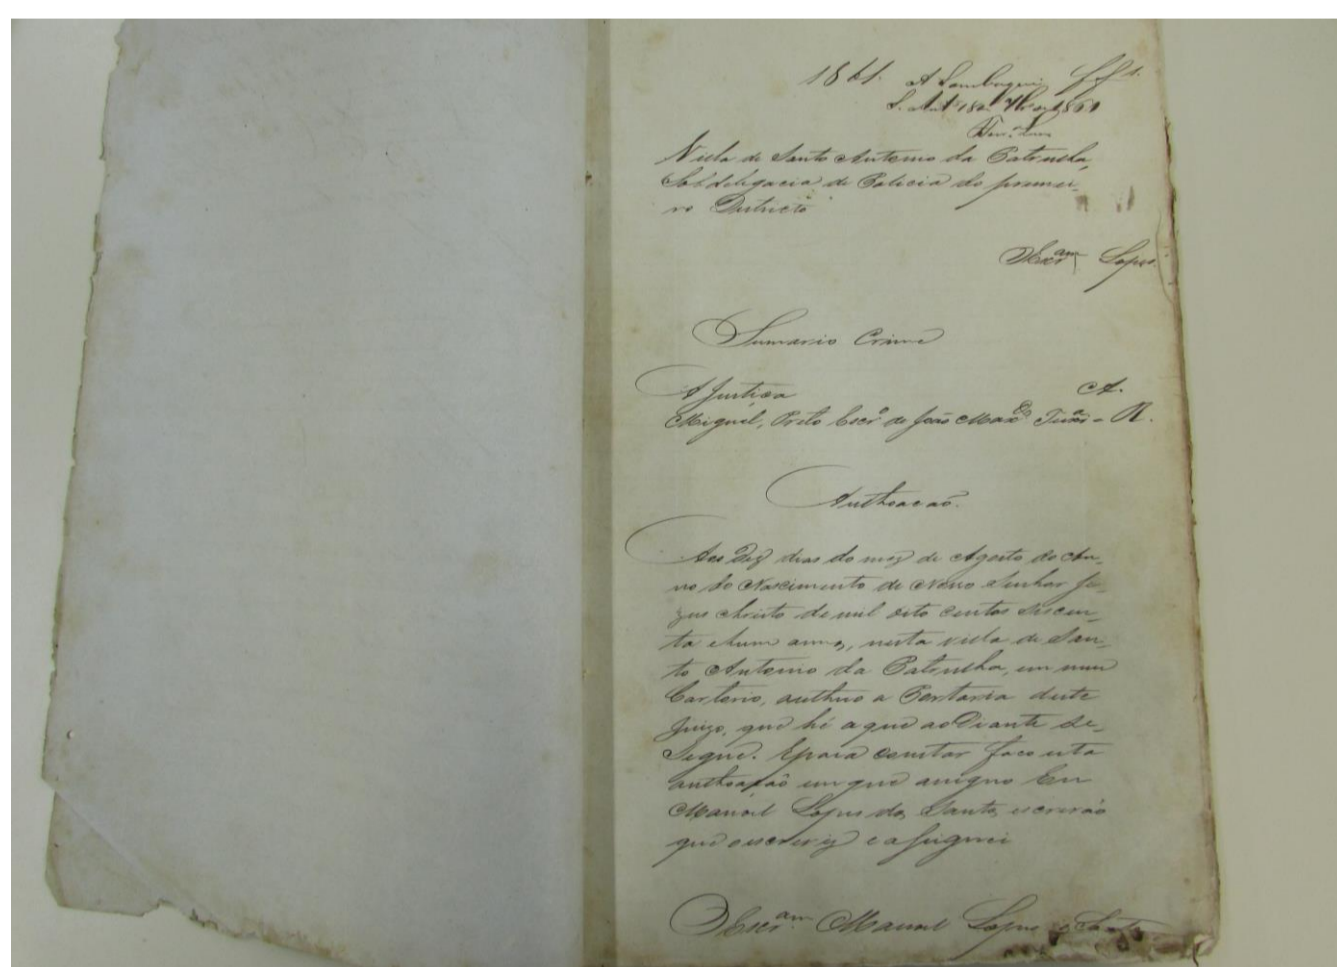 1861.
Villa de Santo Antonio da Patrulha,
Subdelegacia de Policia do primei-
ro Districto
Escr.am Lopes
Sumario Crime
A Justiça A.
Miguel, Preto Escr.o de João Max.o R.
Authoacaõ.
Aos Dez dias do mez de Agosto do An-
no do Nascimento de Nosso Senhor Je-
zus Christo de mil oito centos secen-
ta e hum anno, nesta villa de San-
to Antonio da Patrulha, em meu
Cartorio, authuo a Portaria deste
Juizo, que hé a que ao Diante se-
Segue. Epara constar faco esta
authoação em que asigno Eu
Manoel Lopes dos Santos escrivão
que o escrevy e asignei
Escr.am Manoel Lopes dos Santos